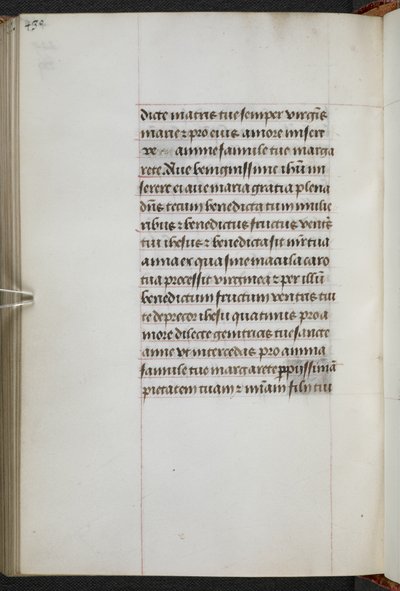 739
dicte matris tue semper virgīs
marie ⁊ pro eius amore misere
re anime famule tue marga
rete. Dn̄e benignissime ihū mi
serere ei aue maria gratia plena
dn̄s tecum benedicta tu in mulie
ribus ⁊ benedictus fructus ventͥs
tui ihesus ⁊ benedicta sit mr̄ tua
anna ex qua sine macula caro
tua processit virginea ⁊ per illū
benedictum fructum ventris tui
te deprecor ihesu quatinus pro a
more dilecte genitricis tue sancte
anne vt intercedas pro anima
famule tue margarete p̱ pijssimā
pietatem tuam ⁊ mīam filij tui